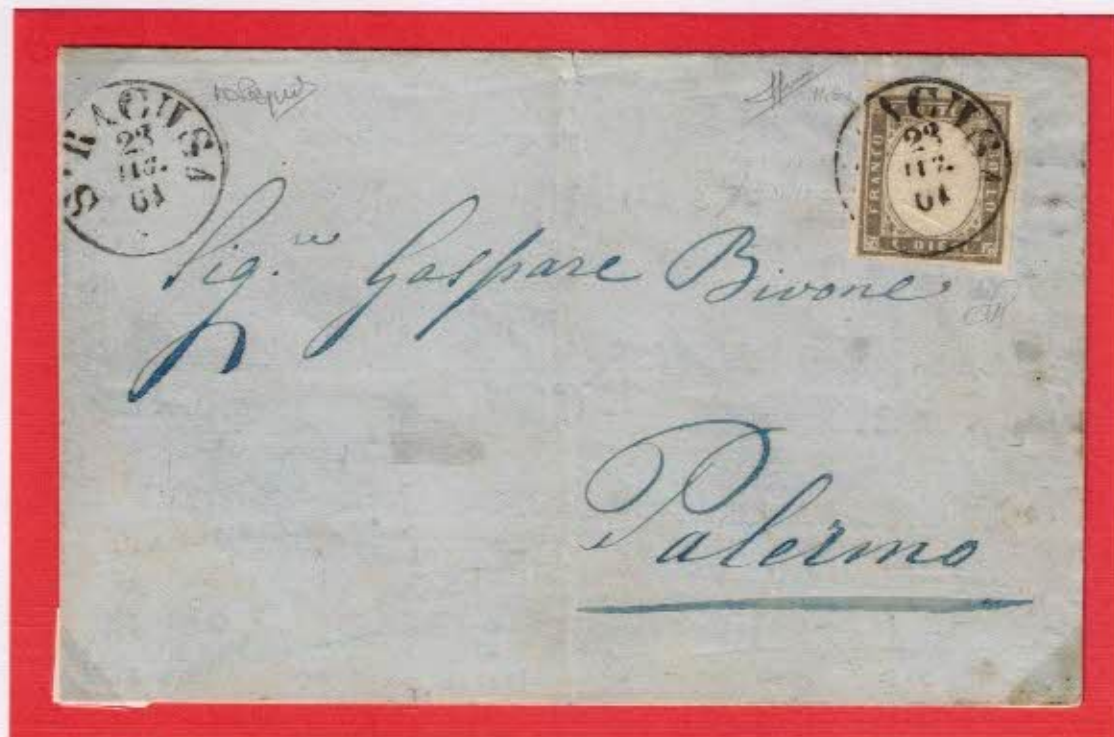 SIRACUSA
23
LUG.
61
ACUSA
23
LUG.
61
FRANCO
BOLLO
C. DIECI
Sig.re Gaspare Bivone
Palermo